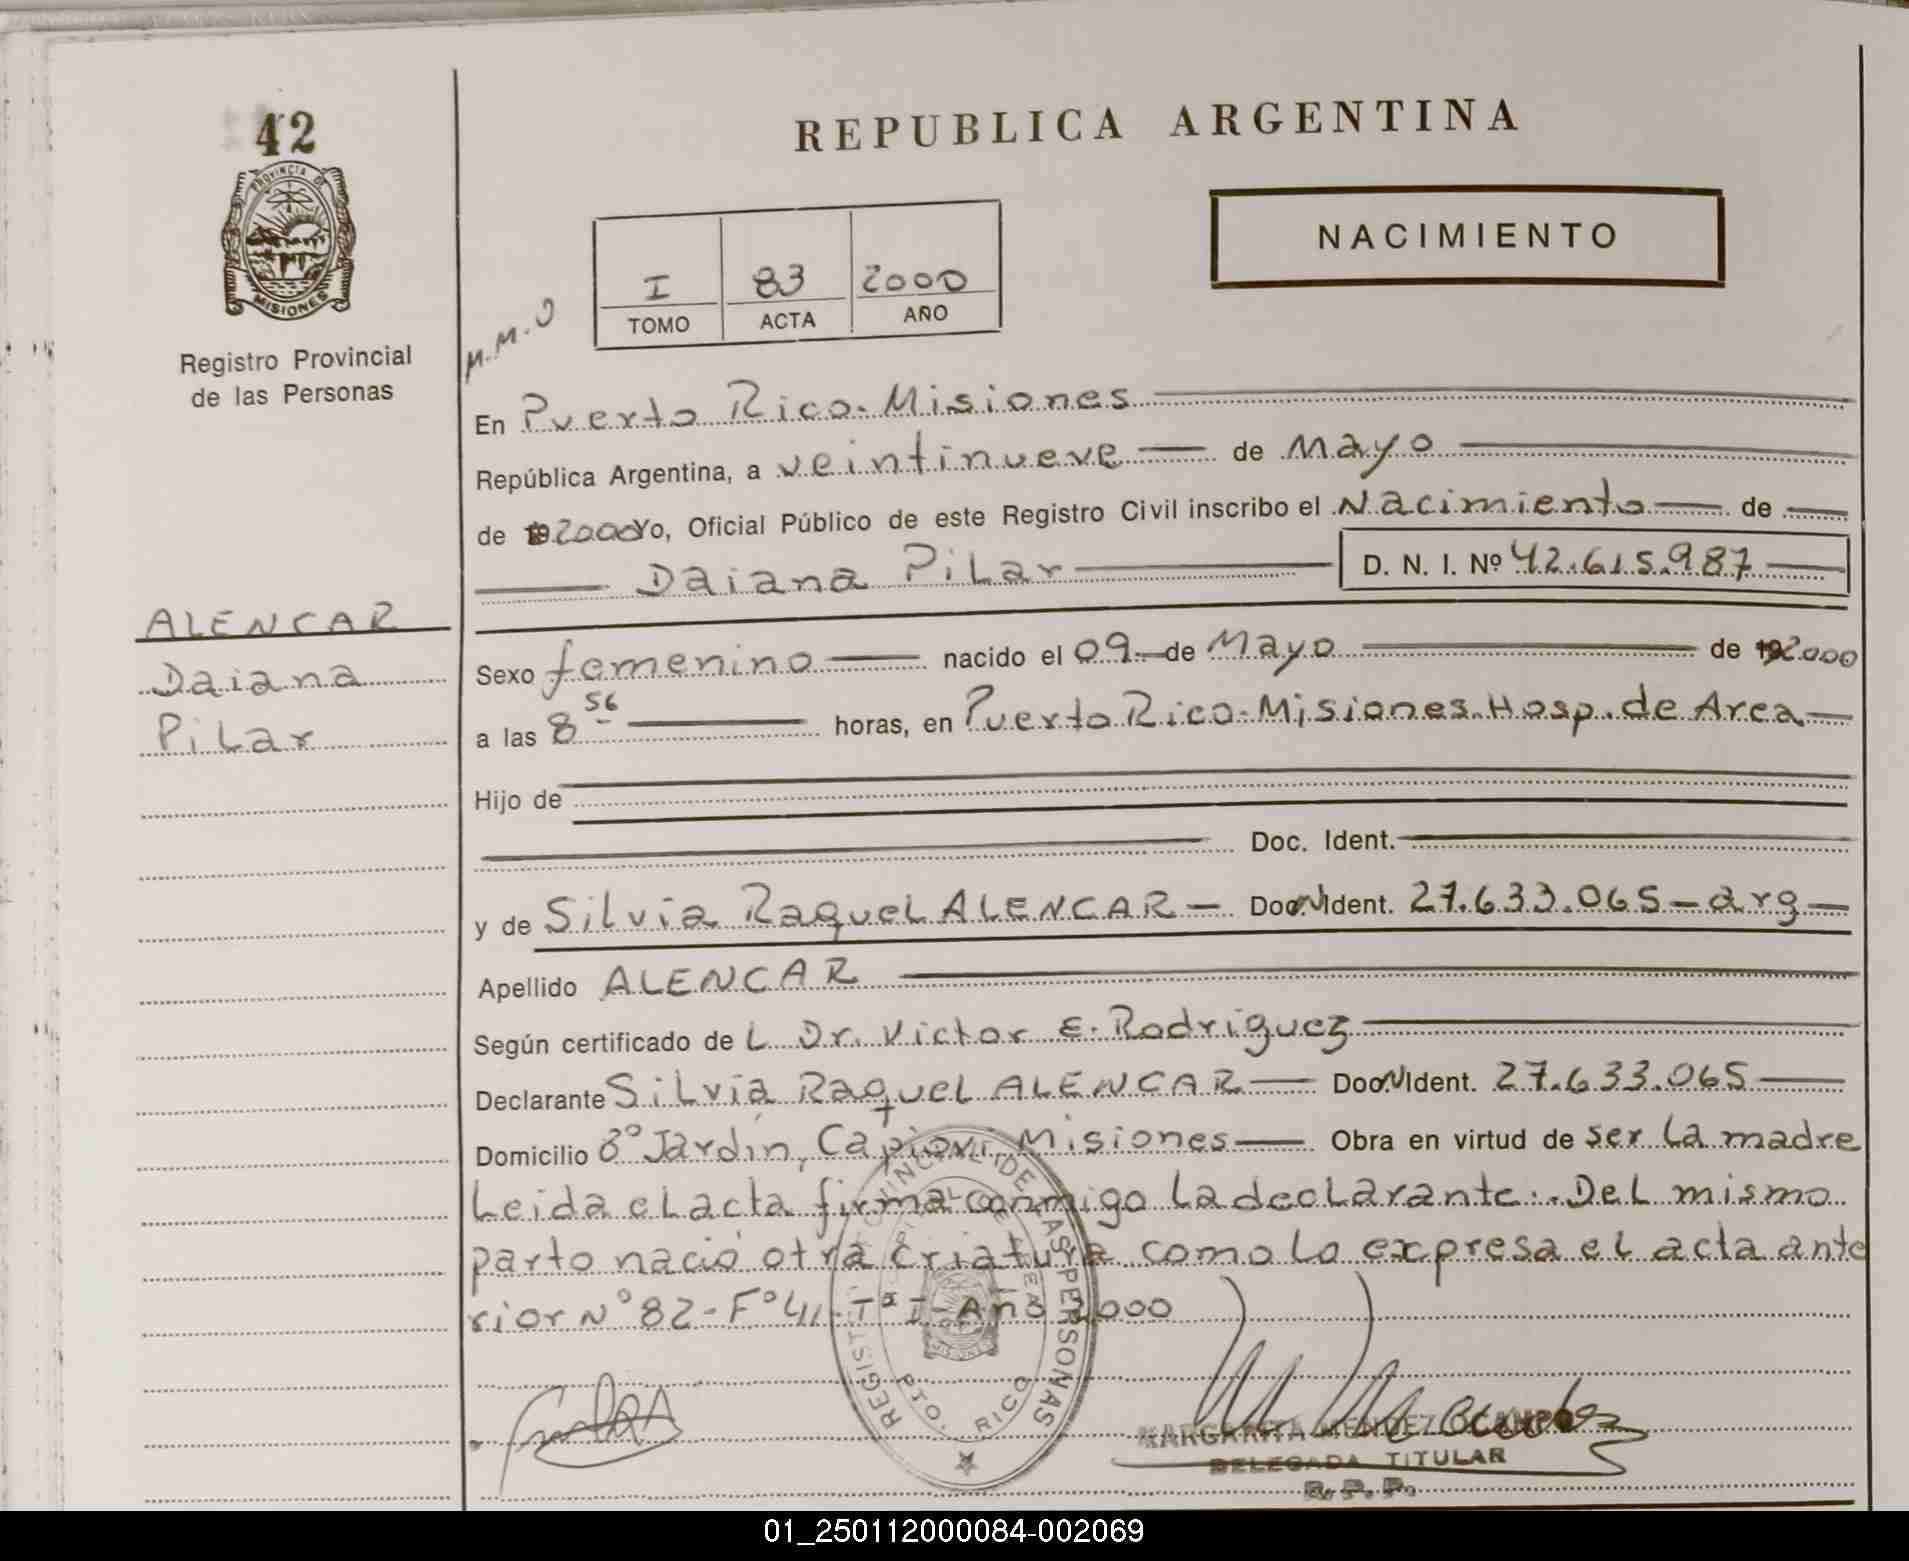 42
PROVINCIA DE
MISIONES
Registro Provincial
de las Personas
REPUBLICA ARGENTINA
NACIMIENTO
I 83 2000
TOMO ACTA AÑO
M.M.O
En Puerto Rico. Misiones
República Argentina, a veintinueve de Mayo
de 2000 Yo, Oficial Público de este Registro Civil inscribo el Nacimiento de
Daiana Pilar D. N. I. Nº 42.615.987
ALENCAR
Daiana
Pilar
Sexo femenino nacido el 09 de Mayo de 2000
a las 8 56 horas, en Puerto Rico. Misiones. Hosp. de Area
Hijo de
Doc. Ident.
y de Silvia Raquel ALENCAR Doc. Ident. 27.633.065 - arg
Apellido ALENCAR
Según certificado de L Dr. Victor E. Rodriguez
Declarante Silvia Raquel ALENCAR Doc. Ident. 27.633.065
Domicilio Bº Jardin, Capiovi, Misiones Obra en virtud de ser la madre
Leida el acta firma conmigo la declarante. Del mismo
parto nació otra criatura como lo expresa el acta ante
rior Nº 82 - Fº 41 - Tº I - Año 2000
REGISTRO PROVINCIAL DE LAS PERSONAS
PTO. RICO
MARGARITA MENDEZ OCAMPO
DELEGADA TITULAR
R. P. P.
01_250112000084-002069